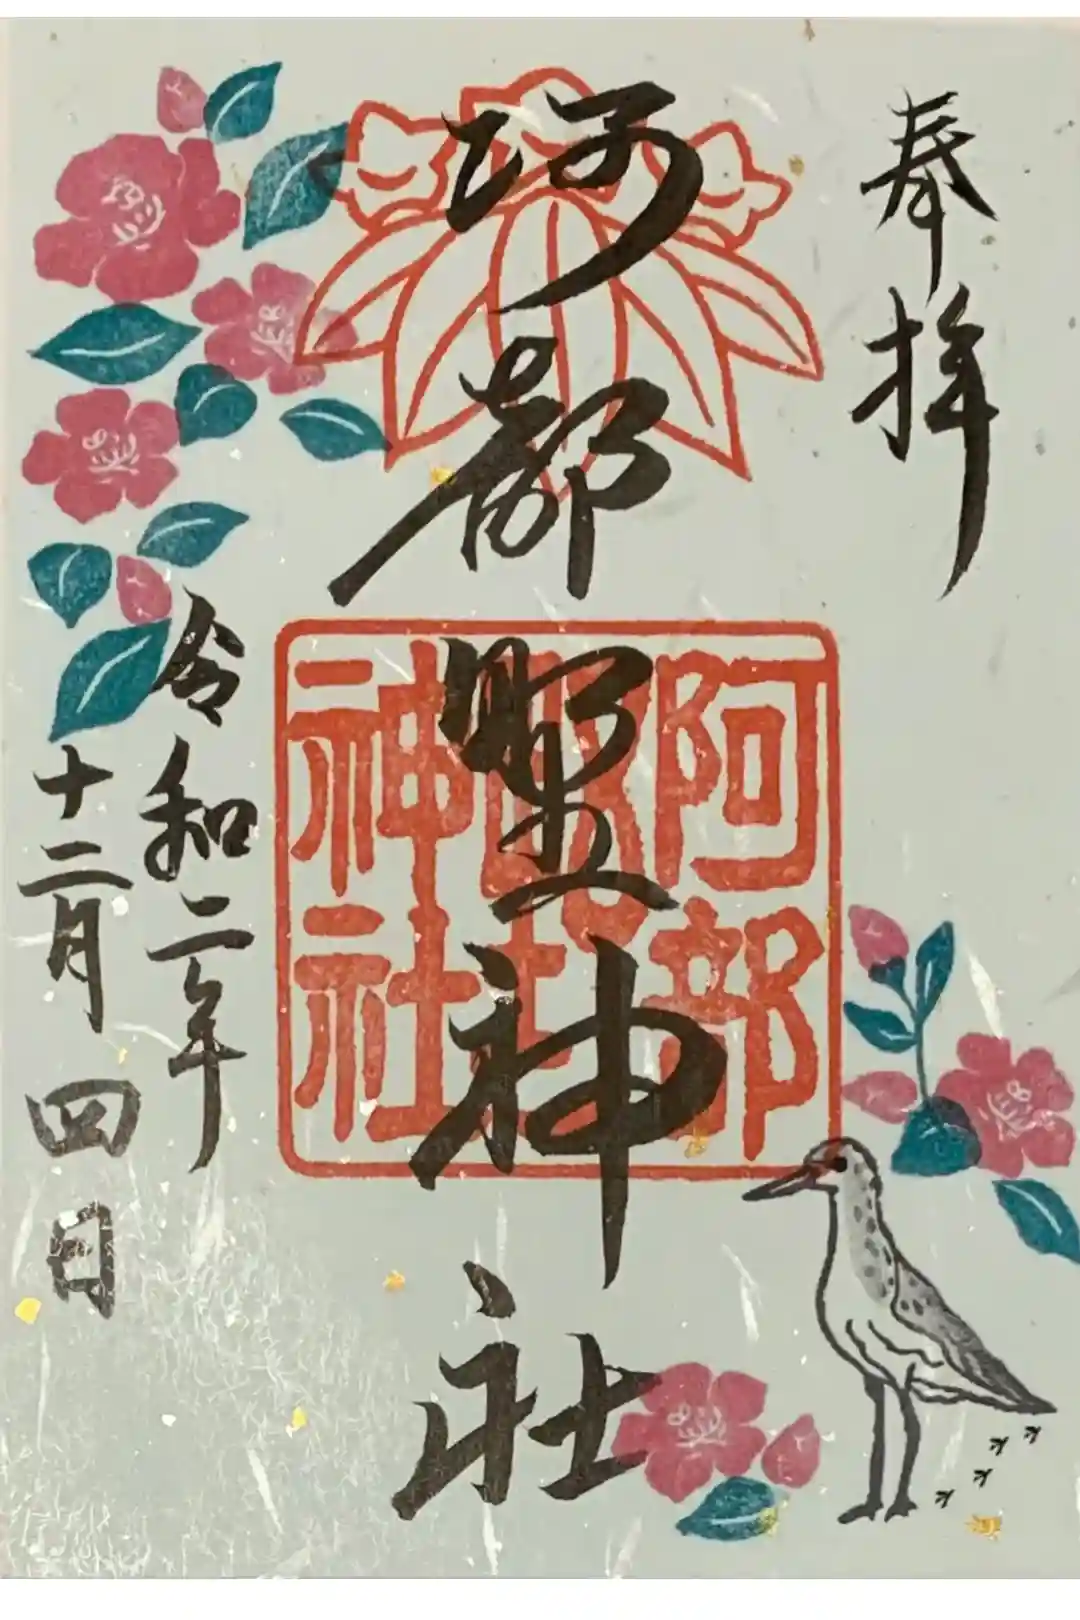 奉拝
阿部野神社
阿部野神社
令和二年
十二月四日